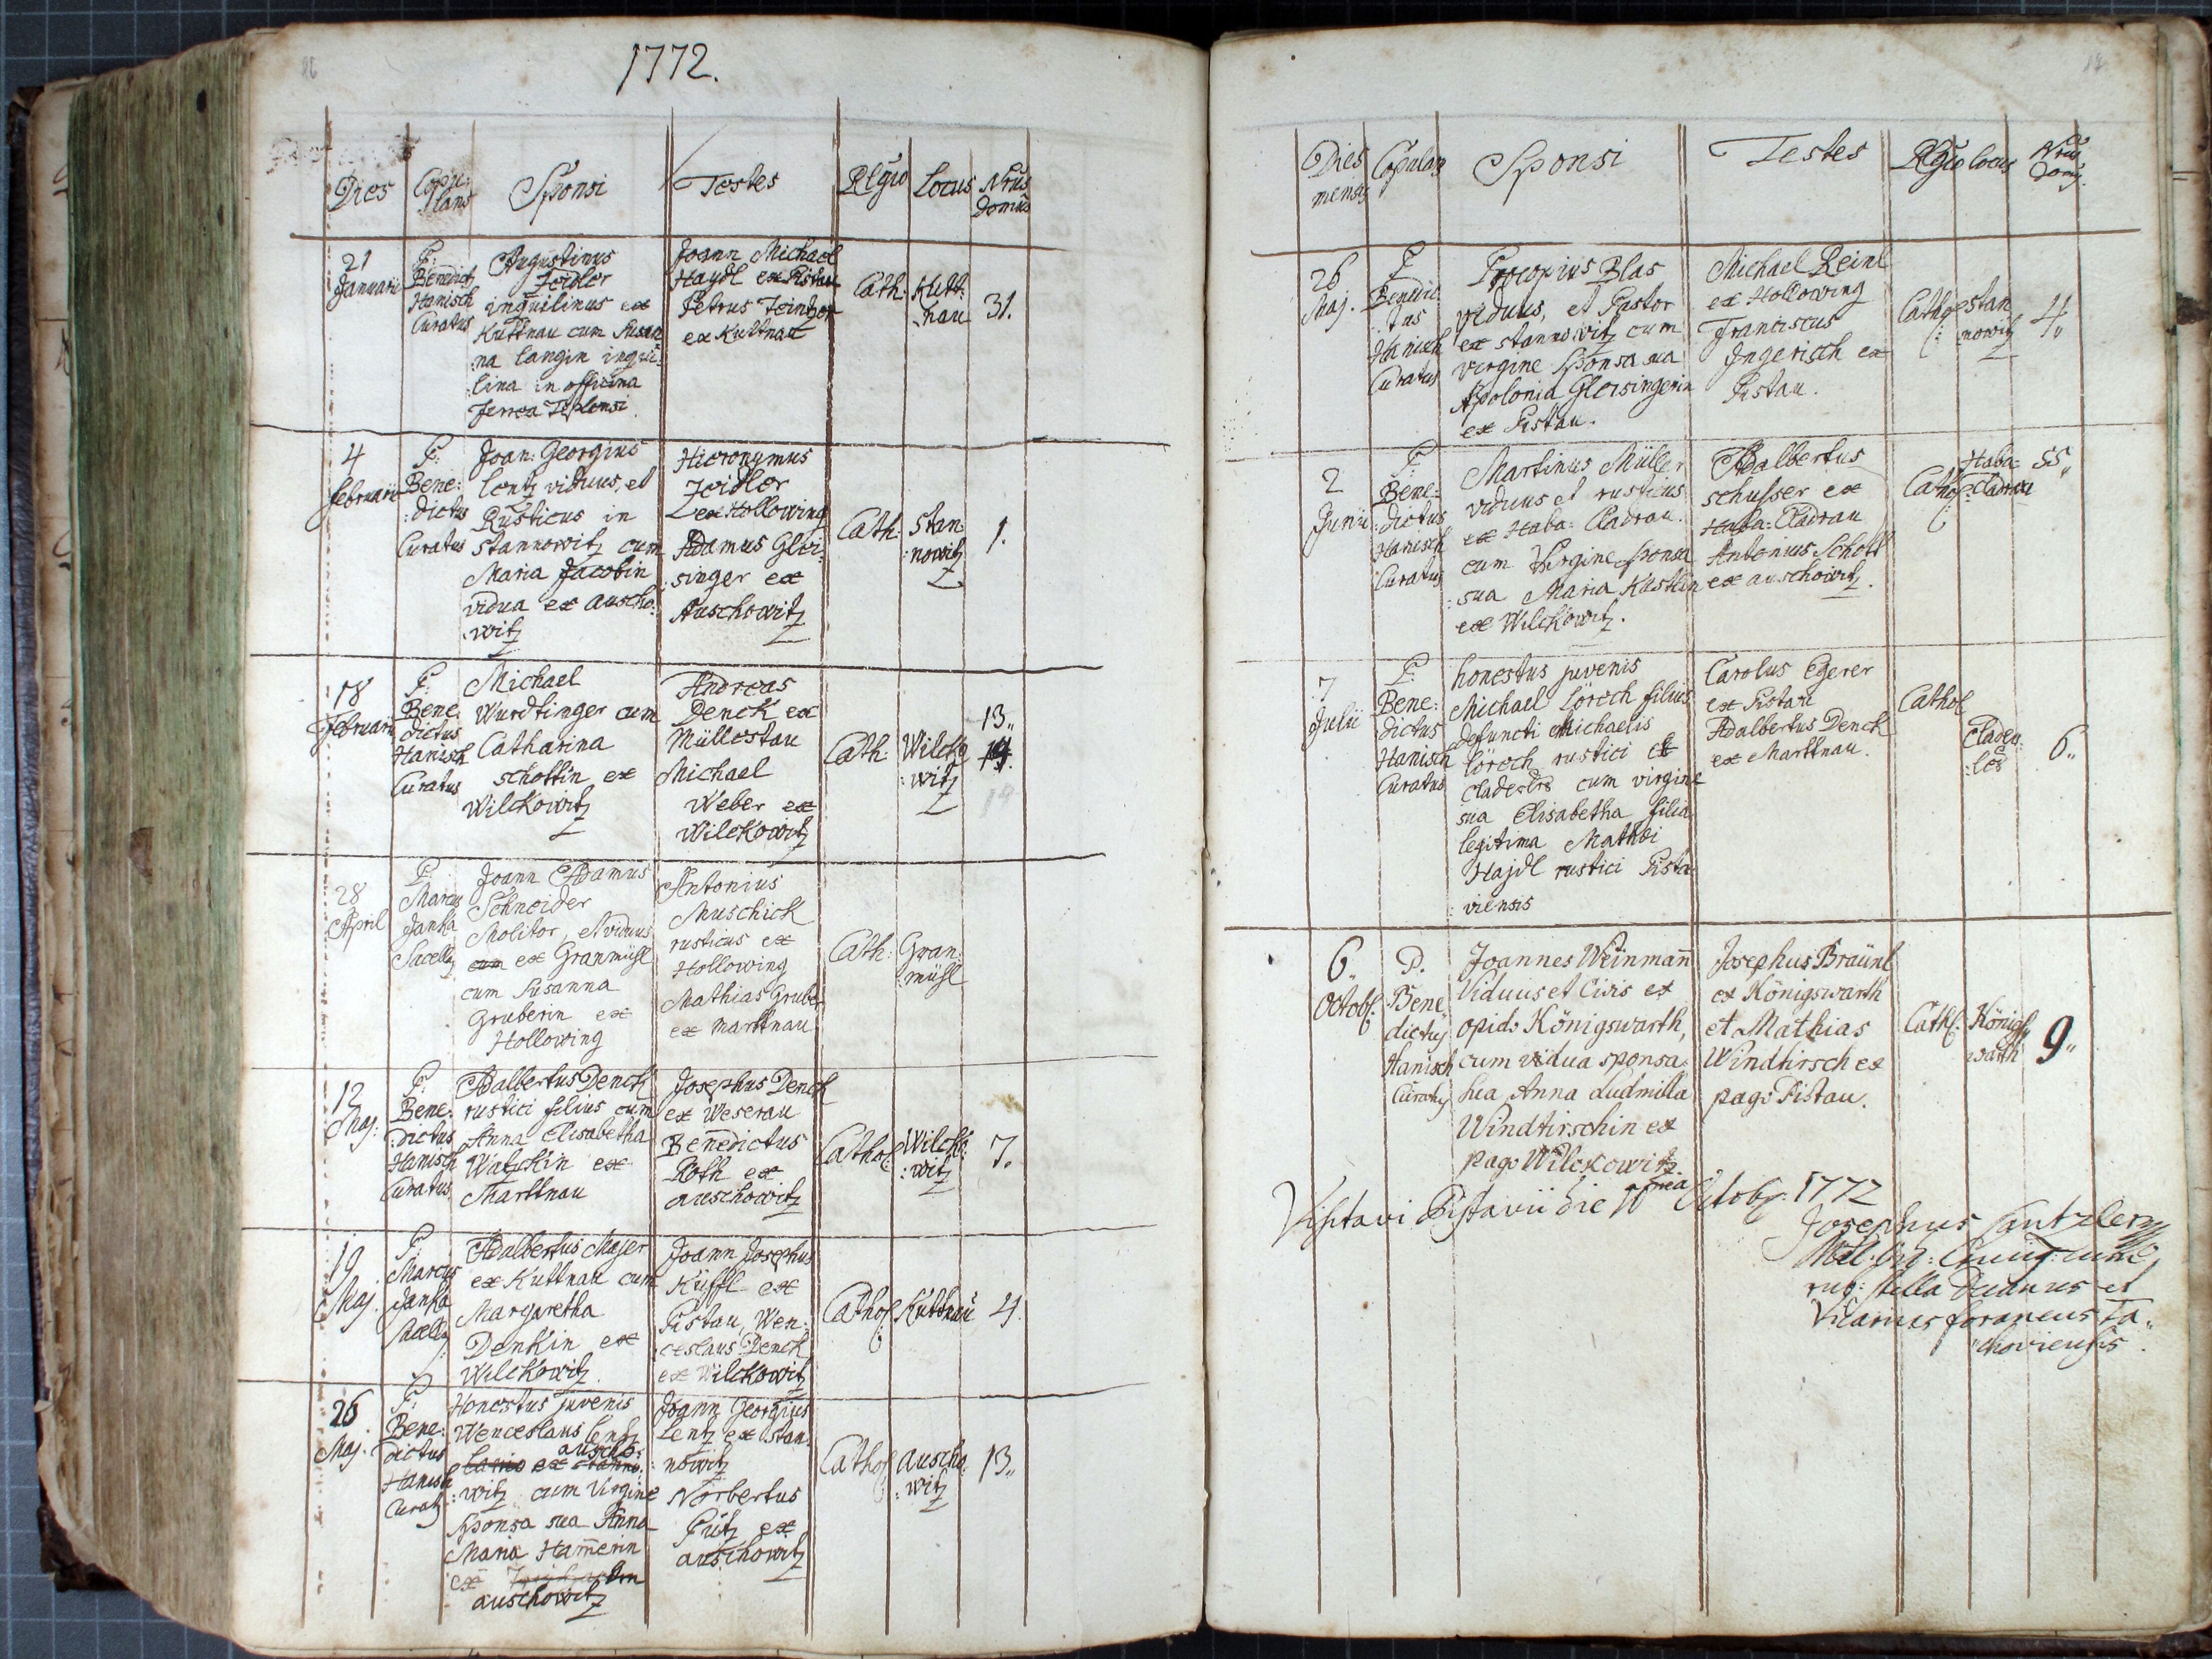 1772.
Dies
Copu:
:lans
Sponsi
Testes
Rlgio
Locus
Nrus
domus
21
Januarii
P:
Benedict
Hanisch
Curatus
Augustinus
Zeidler
inquilinus ex
Kuttnau cum Susan
:na Langin inqui:
:lina in officina
ferrea Teplensi.
Joann Michael
Haydl ex Pistau
Petrus
ex Kuttnau
Cath:
Kutt:
:nau
31.
4
februarii
P:
Bene:
:dictus
Curatus
Joan: Georgius
lentz viduus, et
Rusticus in
Stannowitz cum
Maria Jacobin
vidua ex auscho:
:witz
Hieronymus
Zeidler
ex Hollowing
Adamus Glei:
:singer ex
Auschowitz
Cath:
Stan:
:nowitz
1.
18
Februarii
P:
Bene:
dictus
Hanisch
Curatus
Michael
Wurdtinger cum
Catharina
schottin ex
Wilckowitz
Andreas
Denck ex
Müllestau
Michael
Weber ex
Wilckowitz
Cath:
Wilcko
:witz
13„
14.
28
April
P:
Marcus
Janka
Sacell
Joann Adamus
Schneider
Molitor, et viduus
ex Granmühl
cum Susanna
Gruberin ex
Hollowing
Antonius
Muschick
rusticus ex
Hollowing
Mathias Gruber
ex Marttnau
Cath:
Gran:
:mühl
12
Maj:
P:
Bene:
:dictus
Hanisch
Curatus
Adalbertus Denck
rustici filius cum
Anna Elisabetha
Watzkin ex
Marttnau
Josephus Denck
ex Weserau
Benedictus
Roth ex
auschowitz
Cathol
Wilcko:
:witz
7.
19
Maj.
P:
Marcus
Janka
Sacell
Adalbertus Majer
ex Kuttnau cum
Margaretha
Denkin ex
Wilckowitz.
Joann Josephus
Küffl ex
Pistau, Wen:
:ceslaus Denck
ex Wilckowitz
Cathol
Kuttnau
4.
26
Maj.
P:
Bene:
dictus
Hanisch
Curat
Honestus juvenis
Wenceslaus lentz
auscho:
ex
:witz cum Virgine
Sponsa sua Anna
Maria Ham̄erin
ex
auschowitz
Joann Georgius
Lentz ex stan:
nowitz
Norbertus
Pütz ex
auschowitz
Cathol
auscho:
:witz
13„
Dies
mensis
Copulans
Sponsi
Testes
Rlgio
locus
Nrus
dom.
26
Maj.
P
Benedic
:tus
Hanisch
Curatus
Procopius Blas
viduus, et Pastor
ex stannowitz cum
virgine Sponsa sua
Apolonia Gleisingerin
ex Pistau.
Michael Reinl
ex Hollowing
Franciscus
Ingerisch ex
Pistau.
Cathol
stan
:nowitz
4„
2
Junii
P:
Bene:
:dictus
Hanisch
Curatus
Martinus Müller
viduus et rusticus
ex Haba: Cladrau.
cum Virgine Sponsa
:sua Maria Kastlin
ex Wilckowitz.
Adalbertus
schusser ex
Haba: Cladrau
Antonius Schott
ex auschowitz.
Cathol
Haba:
:Cladrau
55„
7
Julii
P:
Bene:
dictus
Hanisch
Curatus
honestus juvenis
Michael Löroch filius
defuncti Michaelis
löroch rustici ex
Claderiis cum virgine
sua Elisabetha filia
legitima Mathei
Hajdl rustici Pista
:viensis
Carolus Egerer
ex Pistau
Adalbertus Denck
ex Marttnau.
Cathol
Claden
:les
6„
6„
Octob:
P.
Bene
dictus
Hanisch
Curatus
Joannes Weinman̄
Viduus et Civis ex
opido Königswarth,
cum vidua sponsa
sua Anna Ludmilla
Windtirschin ex
pago Wilckowitz.
Josephus Bräunl
ex Königswarth
et Mathias
Windtirsch ex
pago Pistau.
Cath:
Königs
warth
9„
Visitavi Pistavii die 10ma Octobr: 1772
Josephus
rub: stella Decanus et
Vicarius foraneus Ta„
„choviensis.